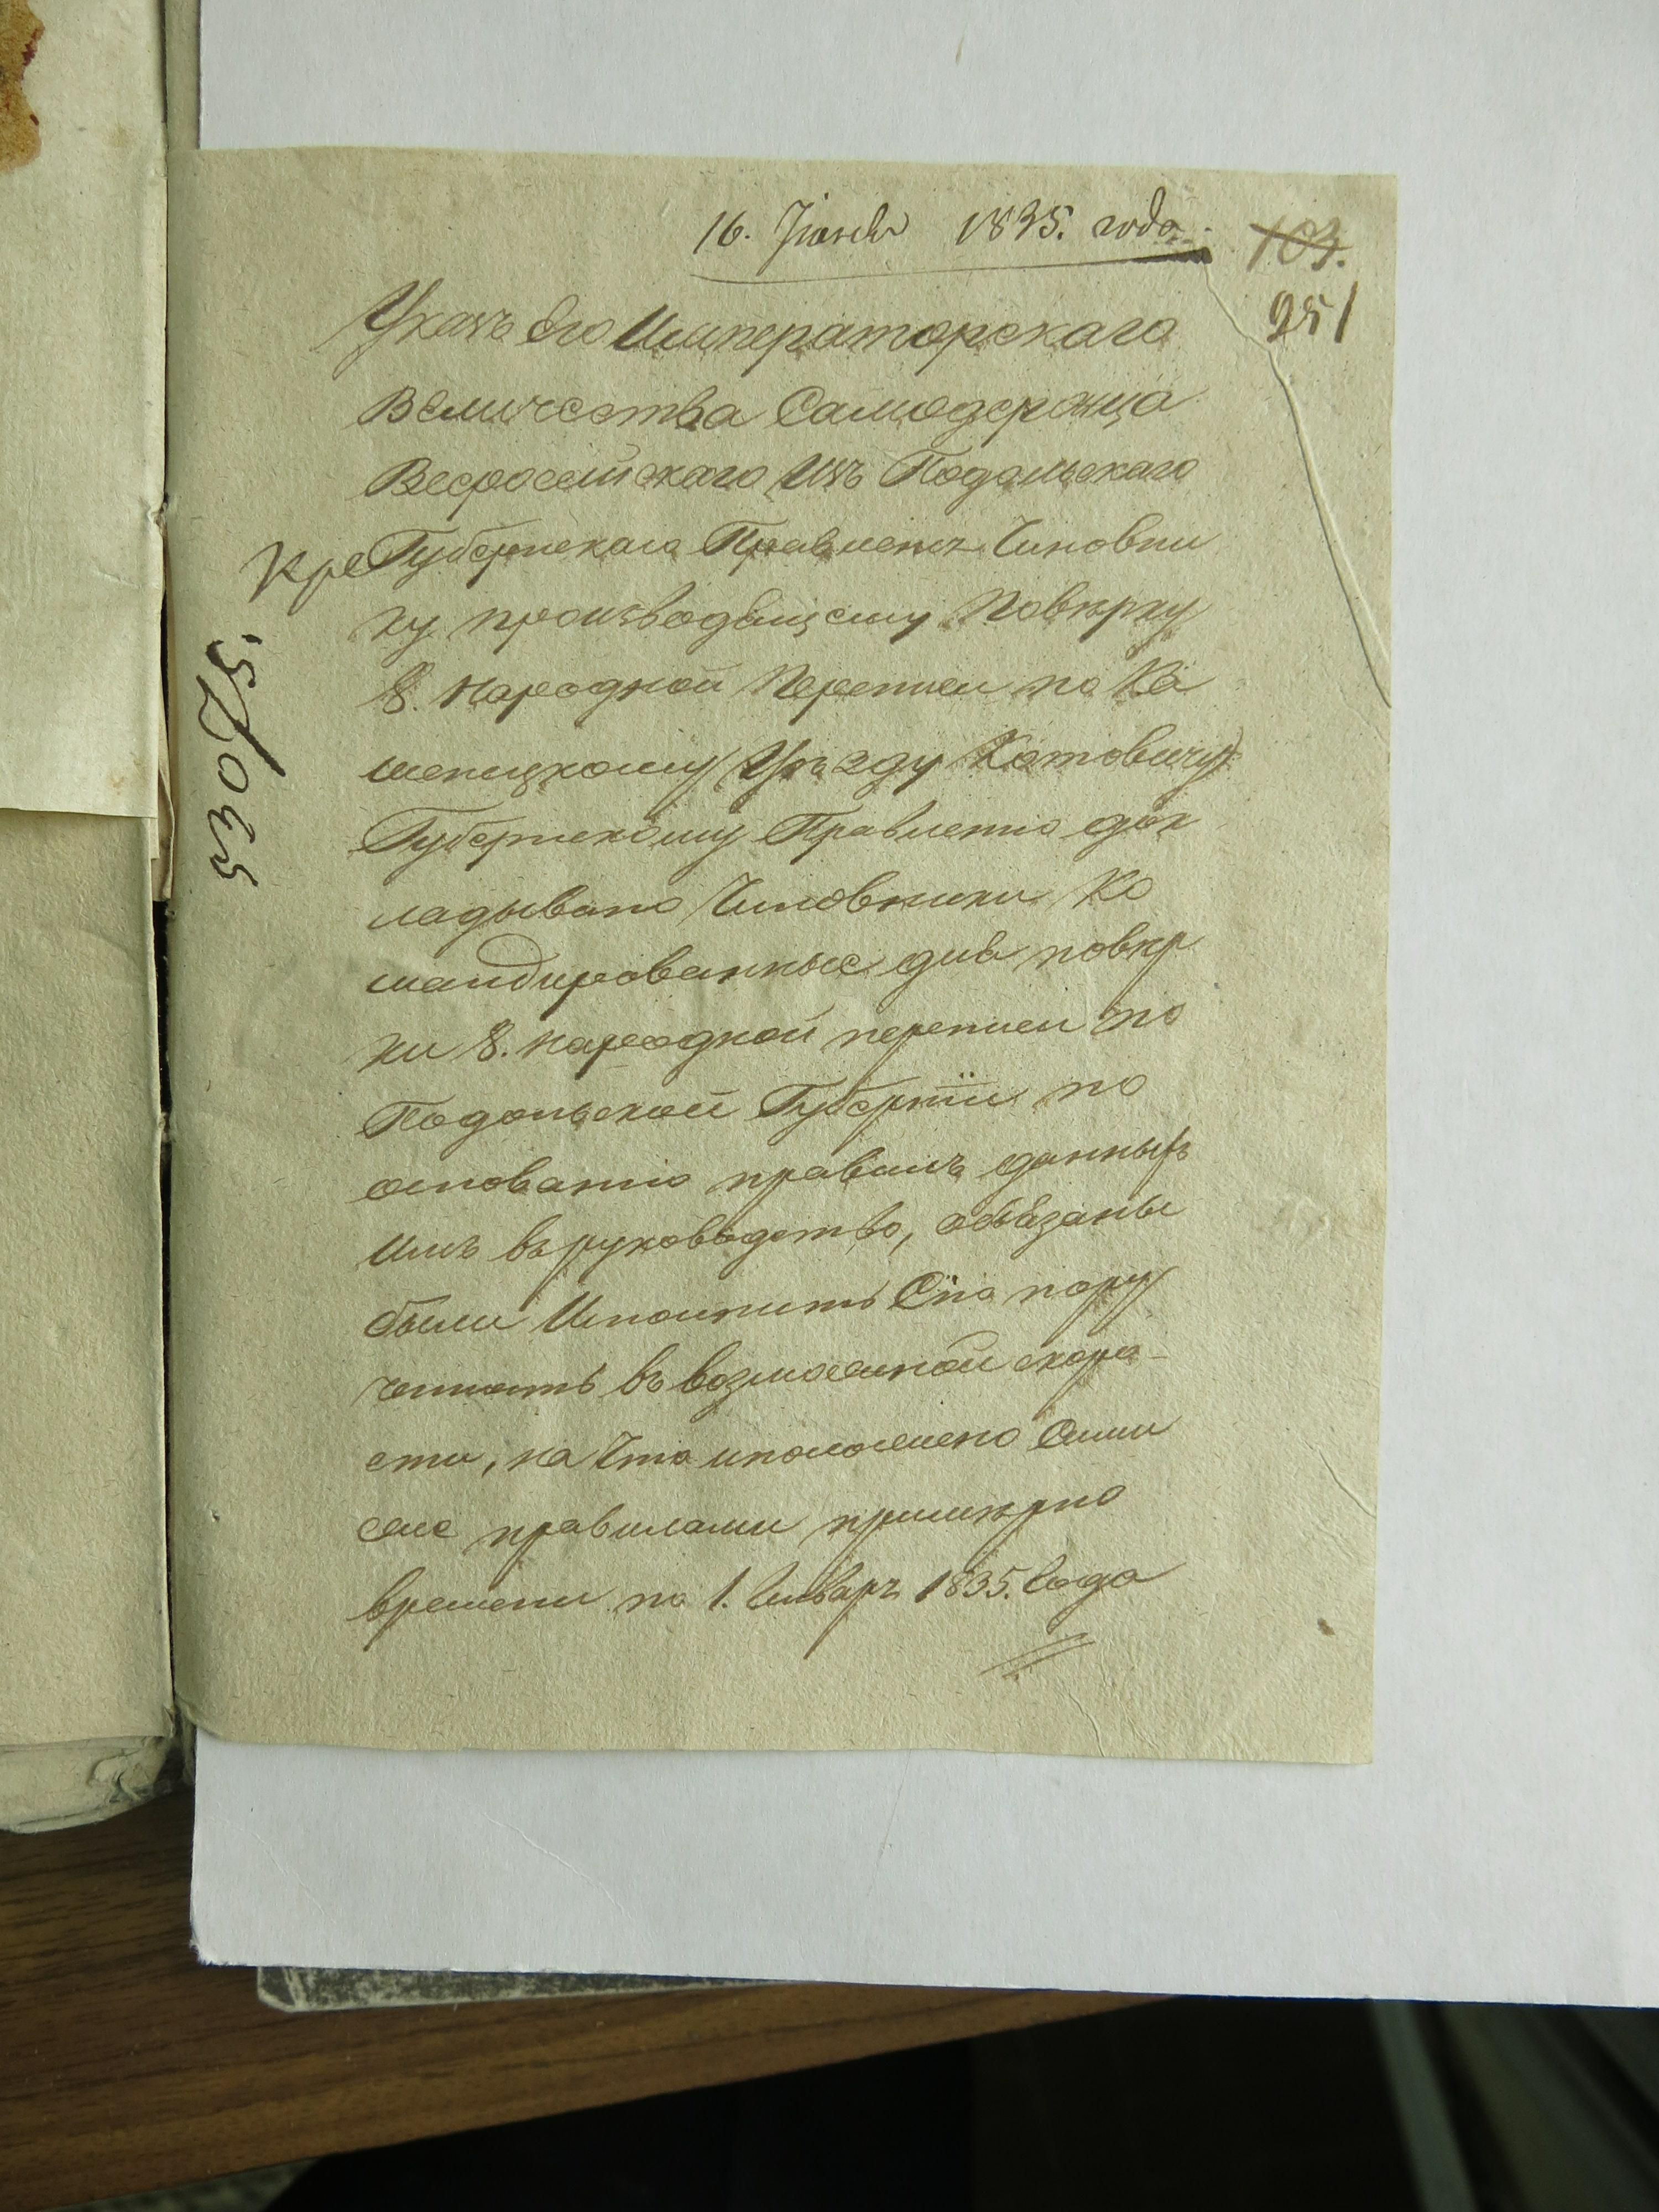 16. Іюля 1835. года.
103.
251
Указъ Его Императорскаго
Величества Самодержца
Всероссійскаго Изъ Подольскаго
Губернскаго Правленія Чиновни
ку производящему Повѣрку
8. Народной Переписи по Ка
менецкому Уѣзду Котовичу
Губернскому Правленію док
ладывано Чиновники Ко
мандированные для повѣр
ки 8. народной переписи по
Подольской Губерніи по
основанію правилъ данныхъ
Имъ въ руководство, обязаны
были Исполнить Сіе пору
ченность въ возможной скоро-
сти, на Что и положено Сими
же правилами примѣрно
времени по 1. Январь 1835. Года
53075.